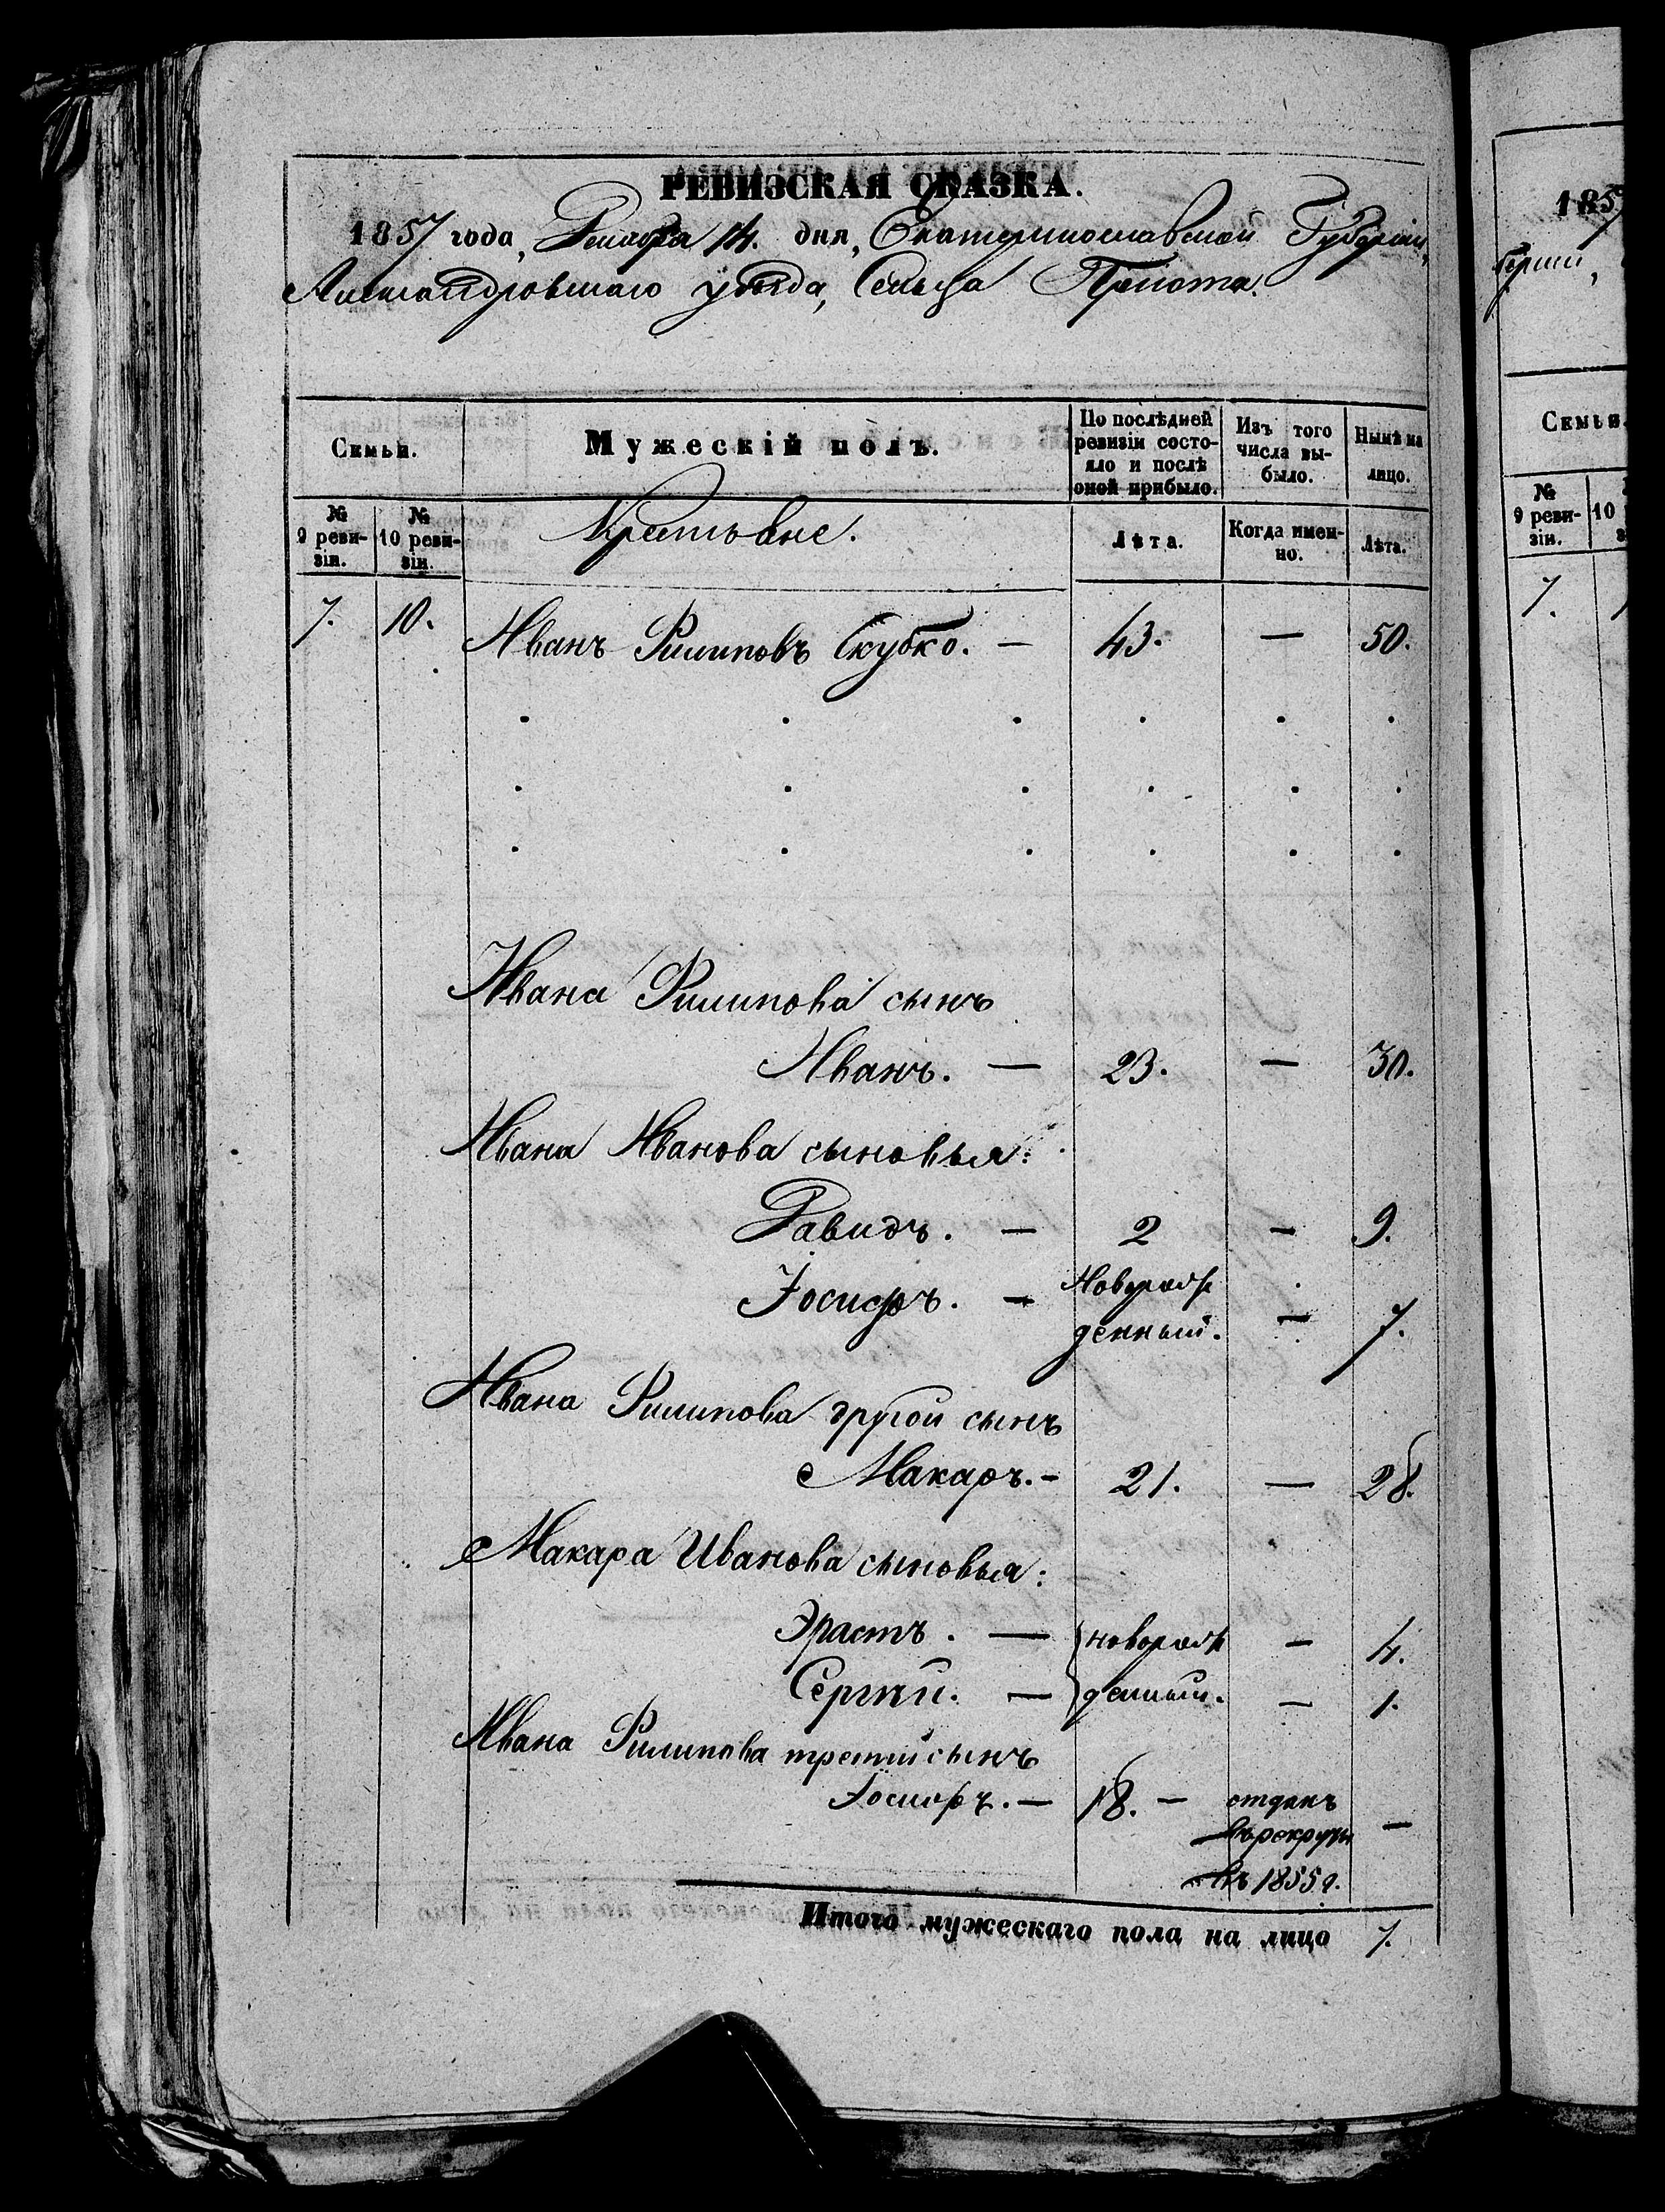 РЕВИЗСКАЯ СКАЗКА.
1857 года, Декабря 14. дня, Екатеринославской Губерніи,
Александровскаго уѣзда, Сельца
Семьи.
Мужескій полъ.
По послѣдней ревизіи состояло и послѣ оной прибыло.
Изъ того числа выбыло.
Нынѣ на лицо.
№ 9 ревизіи.
№ 10 ревизіи.
Крестьяне.
Лѣта.
Когда именно.
Лѣта.
7. 10. Иванъ Филиповъ Скубко. — 43. — 50.
Ивана Филипова сынъ
Иванъ. — 23. — 30.
Ивана Иванова сыновья:
Давидъ. — 2 — 9.
Іосифъ. — Новорож
денный. — 7.
Ивана Филипова другой сынъ
Макаръ. — 21. — 28.
Макара Иванова сыновья:
Эрастъ. — новорож — 4.
Сергѣй. — денные. — 1.
Ивана Филипова третій сынъ
Іосифъ. — 18. — отданъ
въ рекруты —
въ 1855 г.
Итого мужескаго пола на лицо 7.
185
Семьи.
№
9 ревизіи.
10
7.